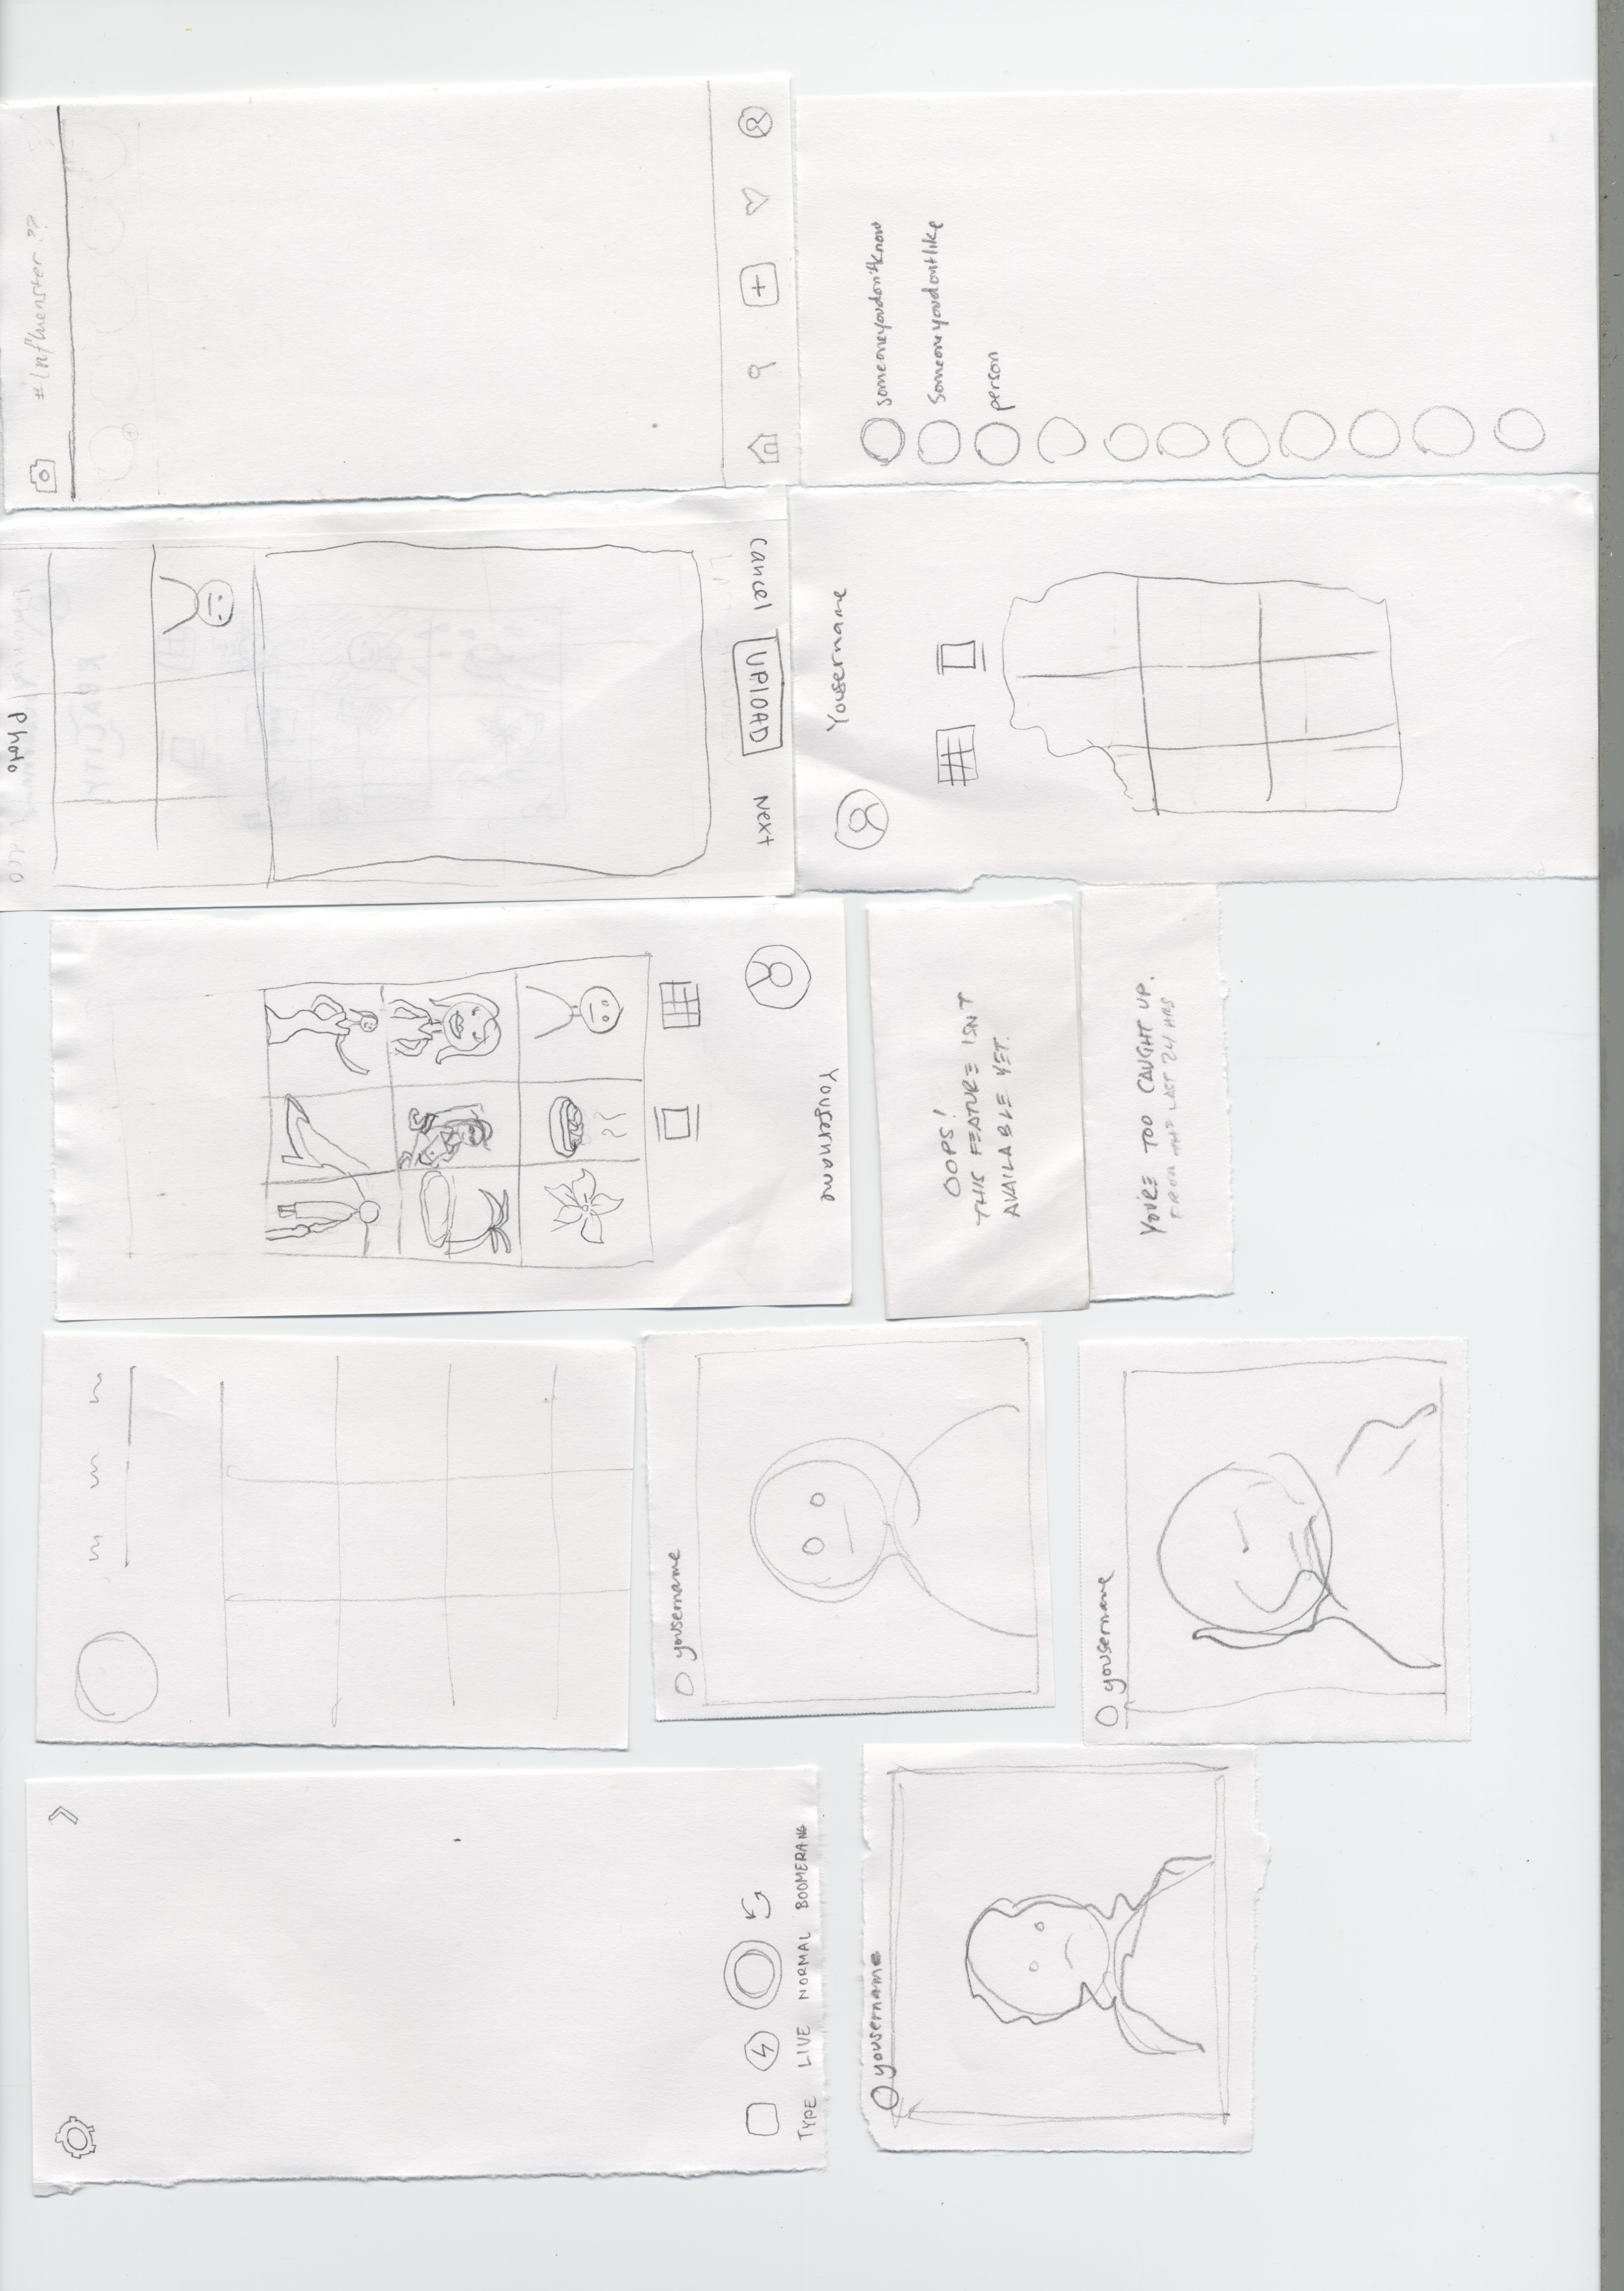 #Influenster??
someoneyoudon'tknow
Someoneyoudontlike
person
Cancel UPLOAD Next
Photo
Yousername
Yousername
OOPS!
THIS FEATURE ISNT
AVAILABLE YET.
YOU'RE TOO CAUGHT UP.
FROM THE LAST 24 HRS
yousername
yousername
TYPE LIVE NORMAL BOOMERANG
yousername